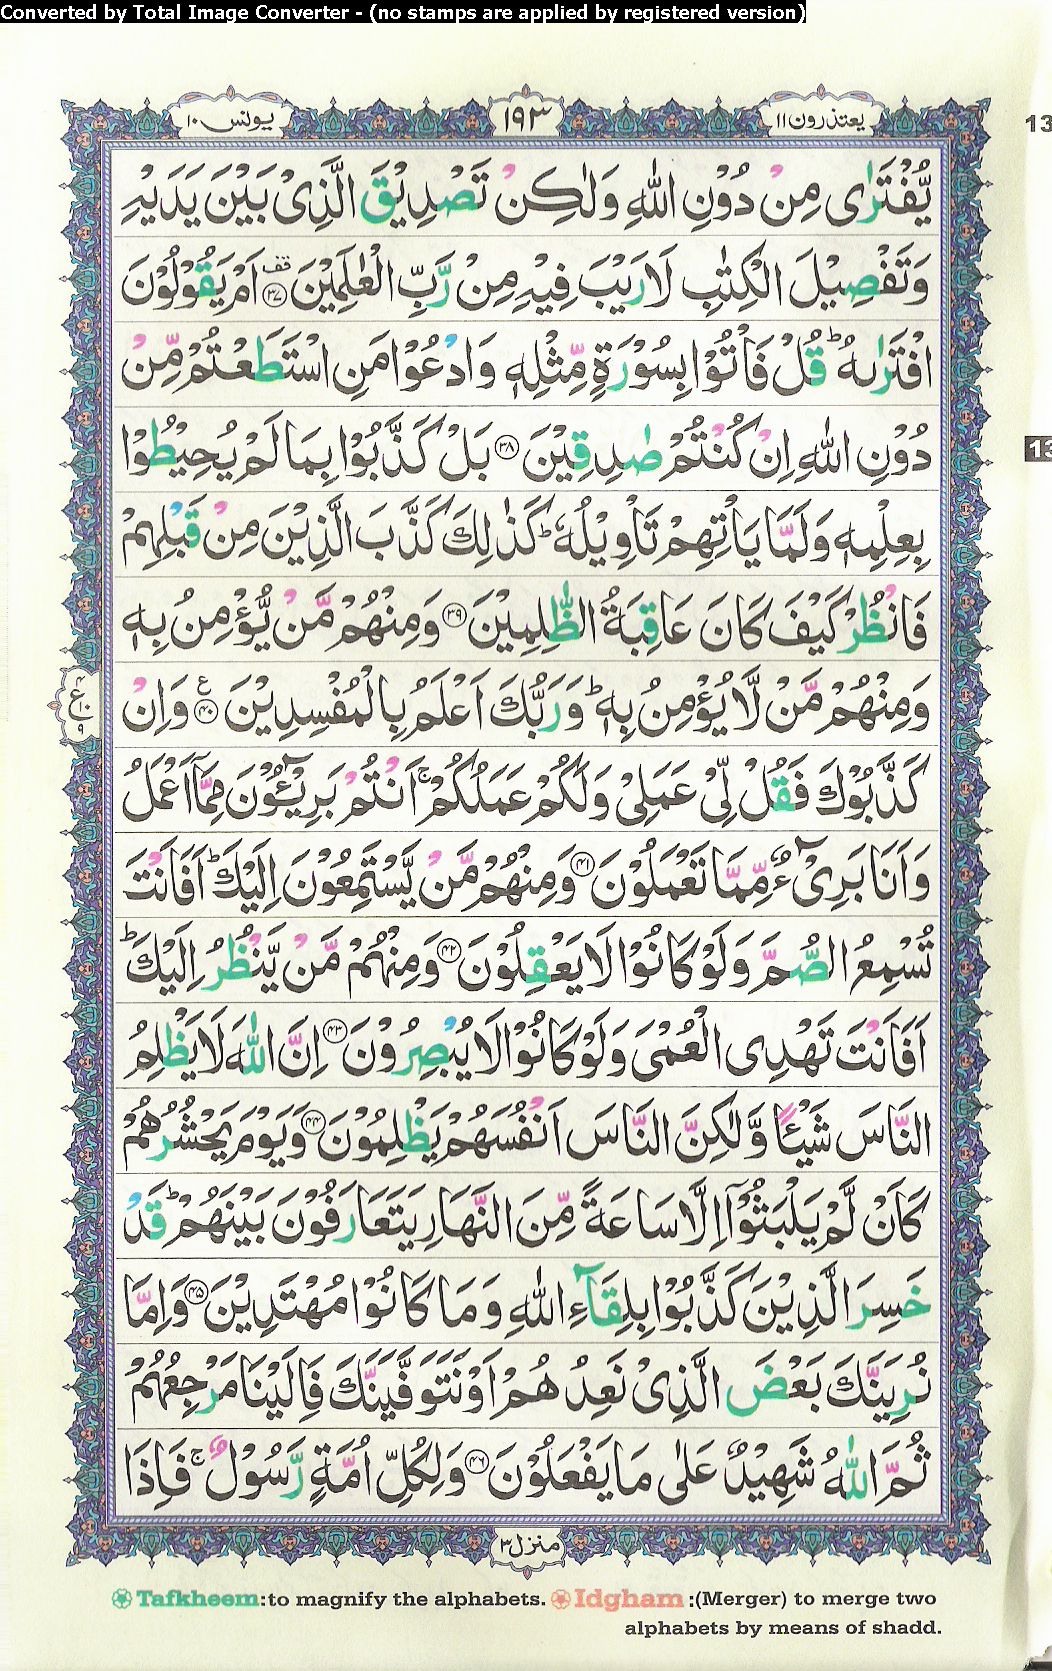 Converted by Total Image Converter - (no stamps are applied by registered version)
یعتذرون ١١
١٩٣
یونس ١٠
13
يُّفْتَرٰى مِنْ دُوْنِ اللّٰهِ وَلٰكِنْ تَصْدِيْقَ الَّذِىْ بَيْنَ يَدَيْهِ
وَتَفْصِيْلَ الْكِتٰبِ لَا رَيْبَ فِيْهِ مِنْ رَّبِّ الْعٰلَمِيْنَ ۟ قف ﴿٣٧﴾ اَمْ يَقُوْلُوْنَ
افْتَرٰىهُ ؕ قُلْ فَاْتُوْا بِسُوْرَةٍ مِّثْلِهٖ وَادْعُوْا مَنِ اسْتَطَعْتُمْ مِّنْ
دُوْنِ اللّٰهِ اِنْ كُنْتُمْ صٰدِقِيْنَ ﴿٣٨﴾ بَلْ كَذَّبُوْا بِمَا لَمْ يُحِيْطُوْا
13
بِعِلْمِهٖ وَلَمَّا يَاْتِهِمْ تَاْوِيْلُهٗ ؕ كَذٰلِكَ كَذَّبَ الَّذِيْنَ مِنْ قَبْلِهِمْ
فَانْظُرْ كَيْفَ كَانَ عَاقِبَةُ الظّٰلِمِيْنَ ﴿٣٩﴾ وَمِنْهُمْ مَّنْ يُّؤْمِنُ بِهٖ
وَمِنْهُمْ مَّنْ لَّا يُؤْمِنُ بِهٖ ؕ وَرَبُّكَ اَعْلَمُ بِالْمُفْسِدِيْنَ ﴿٤٠﴾ ع وَاِنْ
٤ ع ١٠ ٩
كَذَّبُوْكَ فَقُلْ لِّىْ عَمَلِىْ وَلَكُمْ عَمَلُكُمْ ۚ اَنْتُمْ بَرِيْٓـُٔوْنَ مِمَّاۤ اَعْمَلُ
وَاَنَا بَرِىْٓءٌ مِّمَّا تَعْمَلُوْنَ ﴿٤١﴾ وَمِنْهُمْ مَّنْ يَّسْتَمِعُوْنَ اِلَيْكَ ؕ اَفَاَنْتَ
تُسْمِعُ الصُّمَّ وَلَوْ كَانُوْا لَا يَعْقِلُوْنَ ﴿٤٢﴾ وَمِنْهُمْ مَّنْ يَّنْظُرُ اِلَيْكَ ؕ
اَفَاَنْتَ تَهْدِى الْعُمْىَ وَلَوْ كَانُوْا لَا يُبْصِرُوْنَ ﴿٤٣﴾ اِنَّ اللّٰهَ لَا يَظْلِمُ
النَّاسَ شَيْـًٔا وَّلٰكِنَّ النَّاسَ اَنْفُسَهُمْ يَظْلِمُوْنَ ﴿٤٤﴾ وَيَوْمَ يَحْشُرُهُمْ
كَاَنْ لَّمْ يَلْبَثُوْۤا اِلَّا سَاعَةً مِّنَ النَّهَارِ يَتَعَارَفُوْنَ بَيْنَهُمْ ؕ قَدْ
خَسِرَ الَّذِيْنَ كَذَّبُوْا بِلِقَآءِ اللّٰهِ وَمَا كَانُوْا مُهْتَدِيْنَ ﴿٤٥﴾ وَاِمَّا
نُرِيَنَّكَ بَعْضَ الَّذِىْ نَعِدُهُمْ اَوْ نَتَوَفَّيَنَّكَ فَاِلَيْنَا مَرْجِعُهُمْ
ثُمَّ اللّٰهُ شَهِيْدٌ عَلٰى مَا يَفْعَلُوْنَ ﴿٤٦﴾ وَلِكُلِّ اُمَّةٍ رَّسُوْلٌ ۚ فَاِذَا
منزل ٣
Tafkheem:to magnify the alphabets. Idgham :(Merger) to merge two
alphabets by means of shadd.